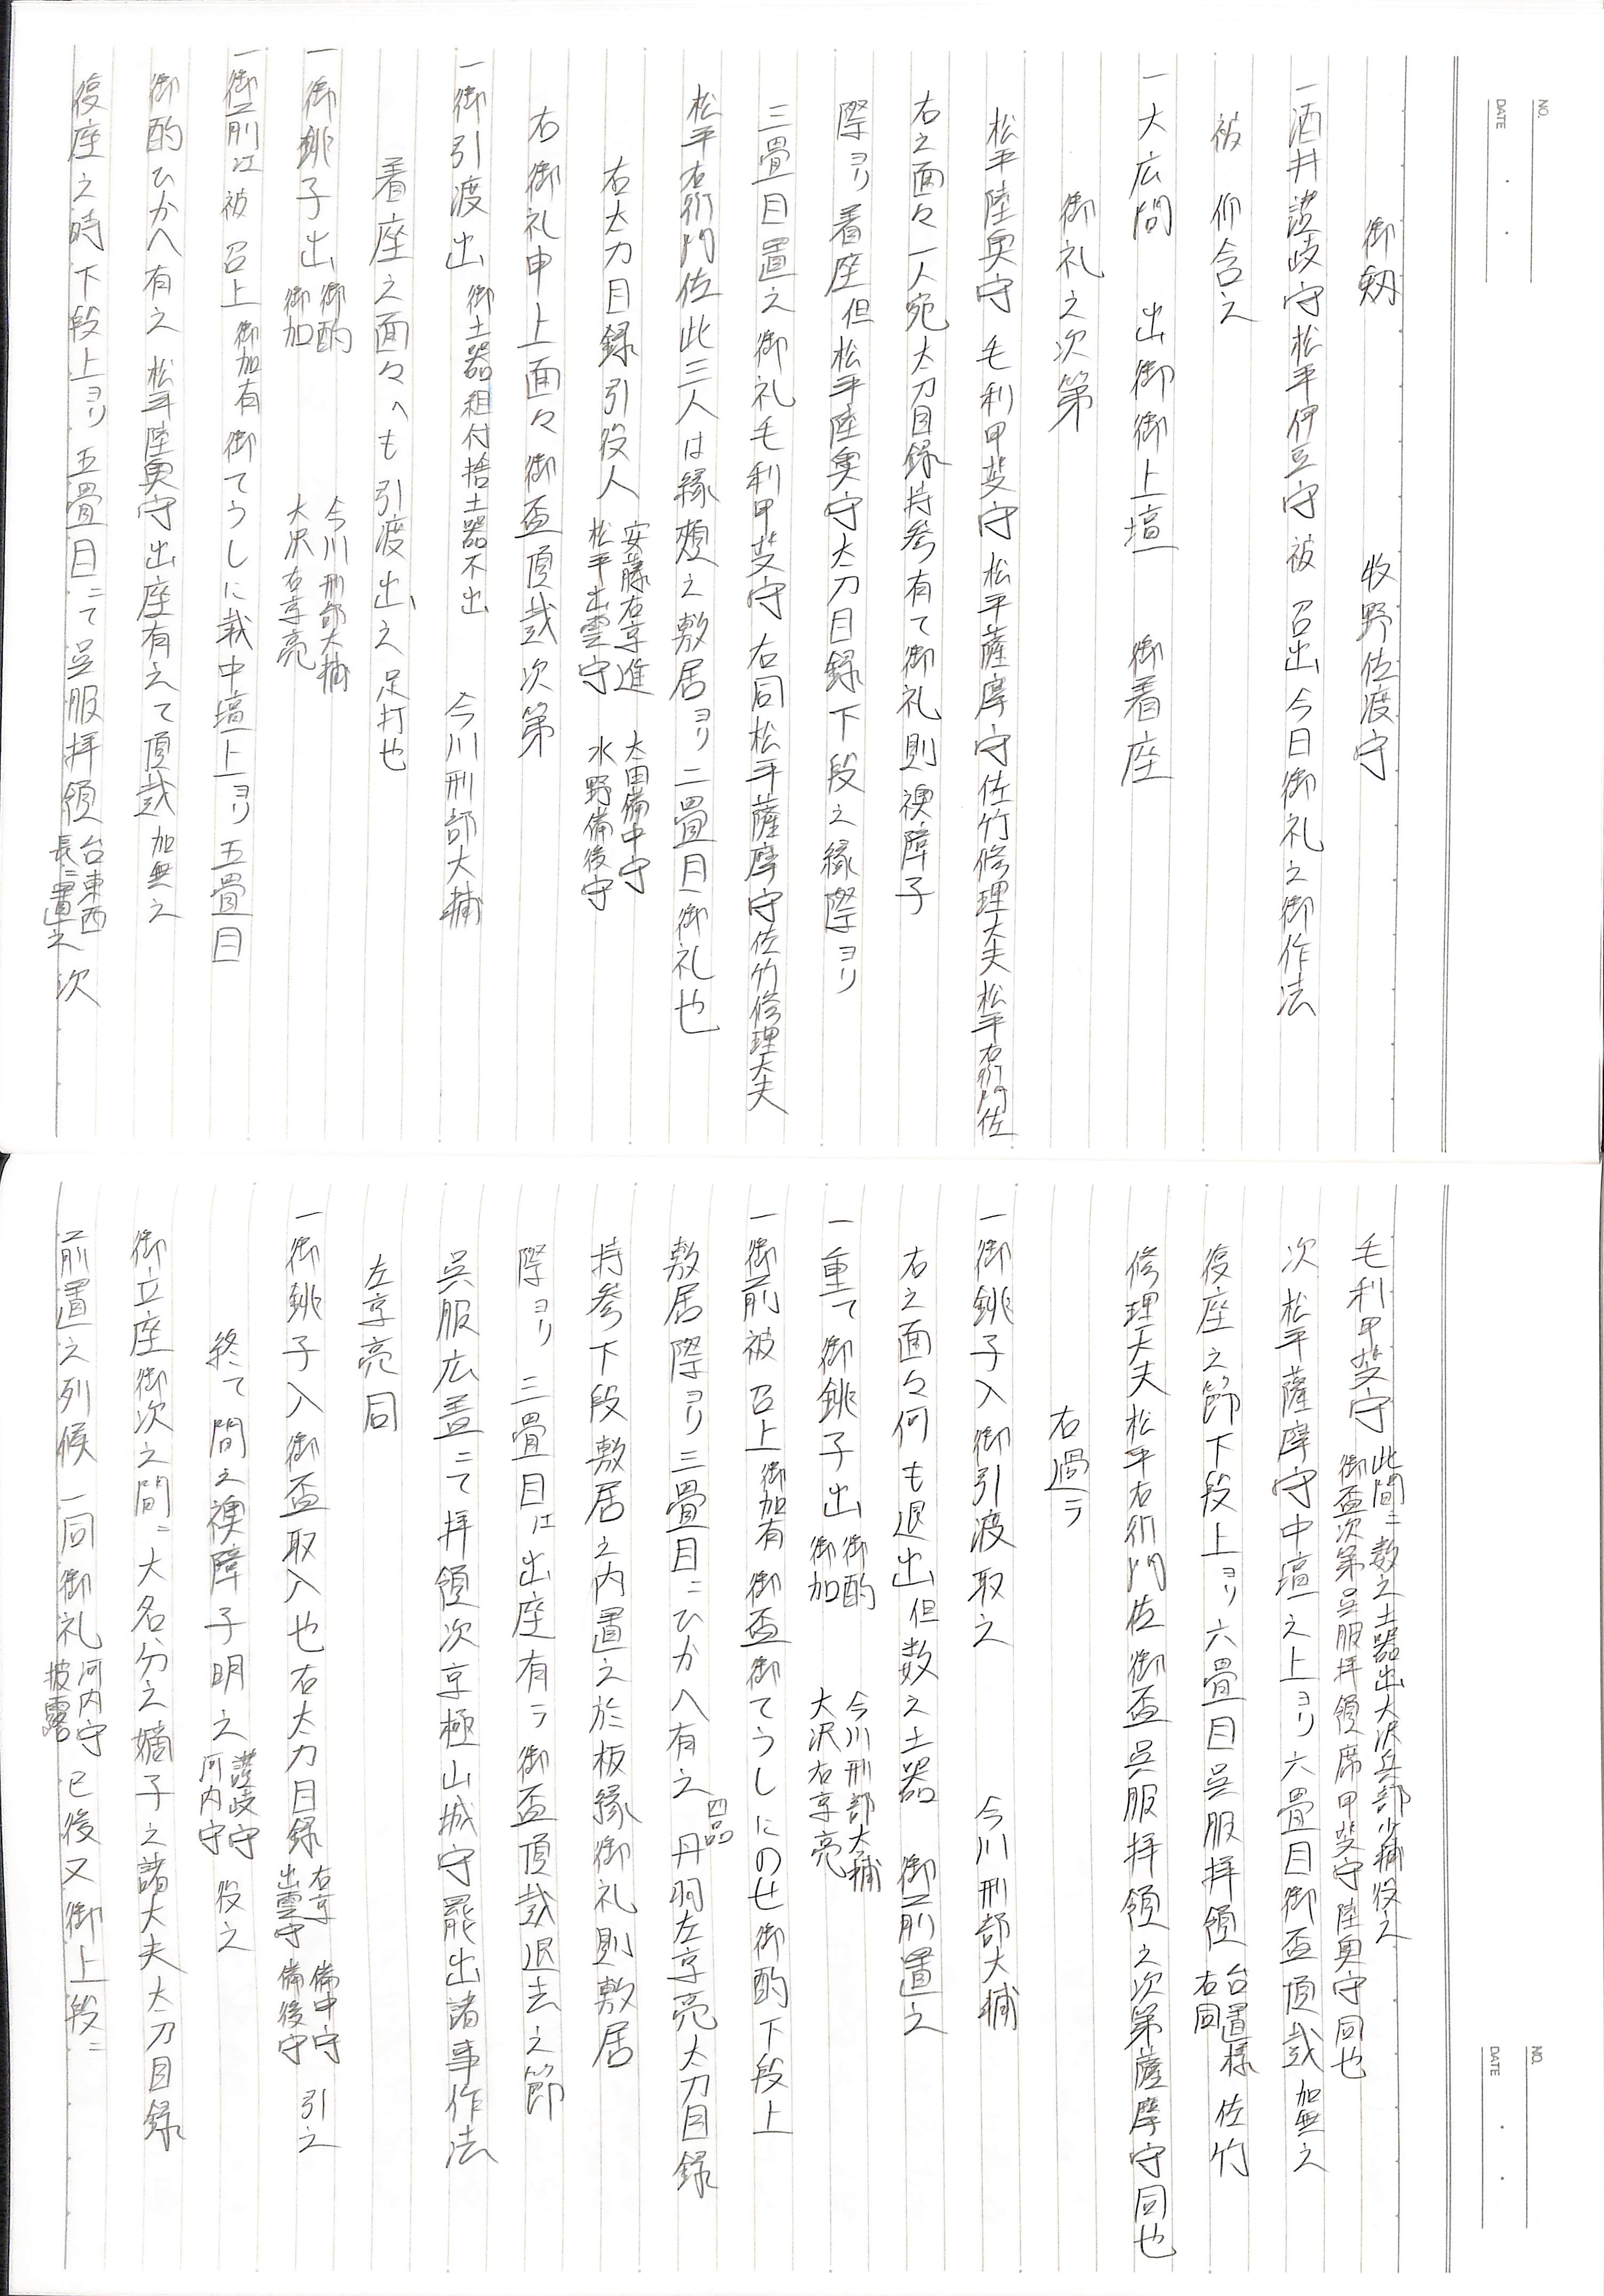 NO.
DATE
御剱　牧野佐渡守
一酒井讃岐守松平伊豆守被　召出今日御礼之御作法
被　仰含之
一大広間　出御御上壇　御着座
御礼之次第
松平陸奥守　毛利甲斐守　松平薩摩守佐竹修理大夫　松平右衛門佐
右之面々一人宛太刀目録持参有て御礼則襖障子
際ヨリ着座但松平陸奥守太刀目録下段之縁際ヨリ
三畳目置之御礼毛利甲斐守右同松平薩摩守佐竹修理大夫
松平右衛門佐此三人は縁頬之敷居ヨリ二畳目御礼也
右太刀目録引役人　安藤右京進　松平出雲守　太田備中守　水野備後守
右御礼申上面々御盃頂戴次第
一御引渡出　御土器組付捨土器不出　今川刑部大輔
着座之面々へも引渡出之足打也
一御銚子出　御酌　御加　今川刑部大輔　大沢右京亮
一御前江被　召上　御加有　御てうしに載中壇上ヨリ五畳目
御酌ひかへ有之　松平陸奥守出座有之て頂戴　加無之
復座之時下段上ヨリ五畳目ニて呉服拝領　台東西長ニ置之　次
NO.
DATE
毛利甲斐守　此間ニ数之土器出大沢兵部少輔役之　御盃次第呉服拝領席甲斐守陸奥守同也
次松平薩摩守中壇之上ヨリ六畳目御盃頂戴　加無之
復座之節下段上ヨリ六畳目呉服拝領　台置様右同　佐竹
修理大夫松平右衛門佐御盃呉服拝領之次第薩摩守同也
右過テ
一御銚子入御引渡取之　今川刑部大輔
右之面々何も退出但数之土器　御前置之
一重て御銚子出　御酌　御加　今川刑部大輔　大沢右京亮
一御前被　召上　御加有　御盃御てうしにのせ御酌下段上
敷居際ヨリ三畳目ニひかへ有之　四品　丹羽左京亮太刀目録
持参下段敷居之内置之於板縁御礼則敷居
際ヨリ三畳目江出座有テ御盃頂戴退去之節
呉服広蓋ニて拝領次京極山城守罷出諸事作法
左京亮同
一御銚子入御盃取入也右太刀目録　右京　出雲守　備中守　備後守　引之
終て間之襖障子明之　讃岐守　河内守　役之
御立座御次之間ニ大名分之嫡子之諸大夫太刀目録
前置之列候一同御礼　河内守披露　已後又御上段ニ